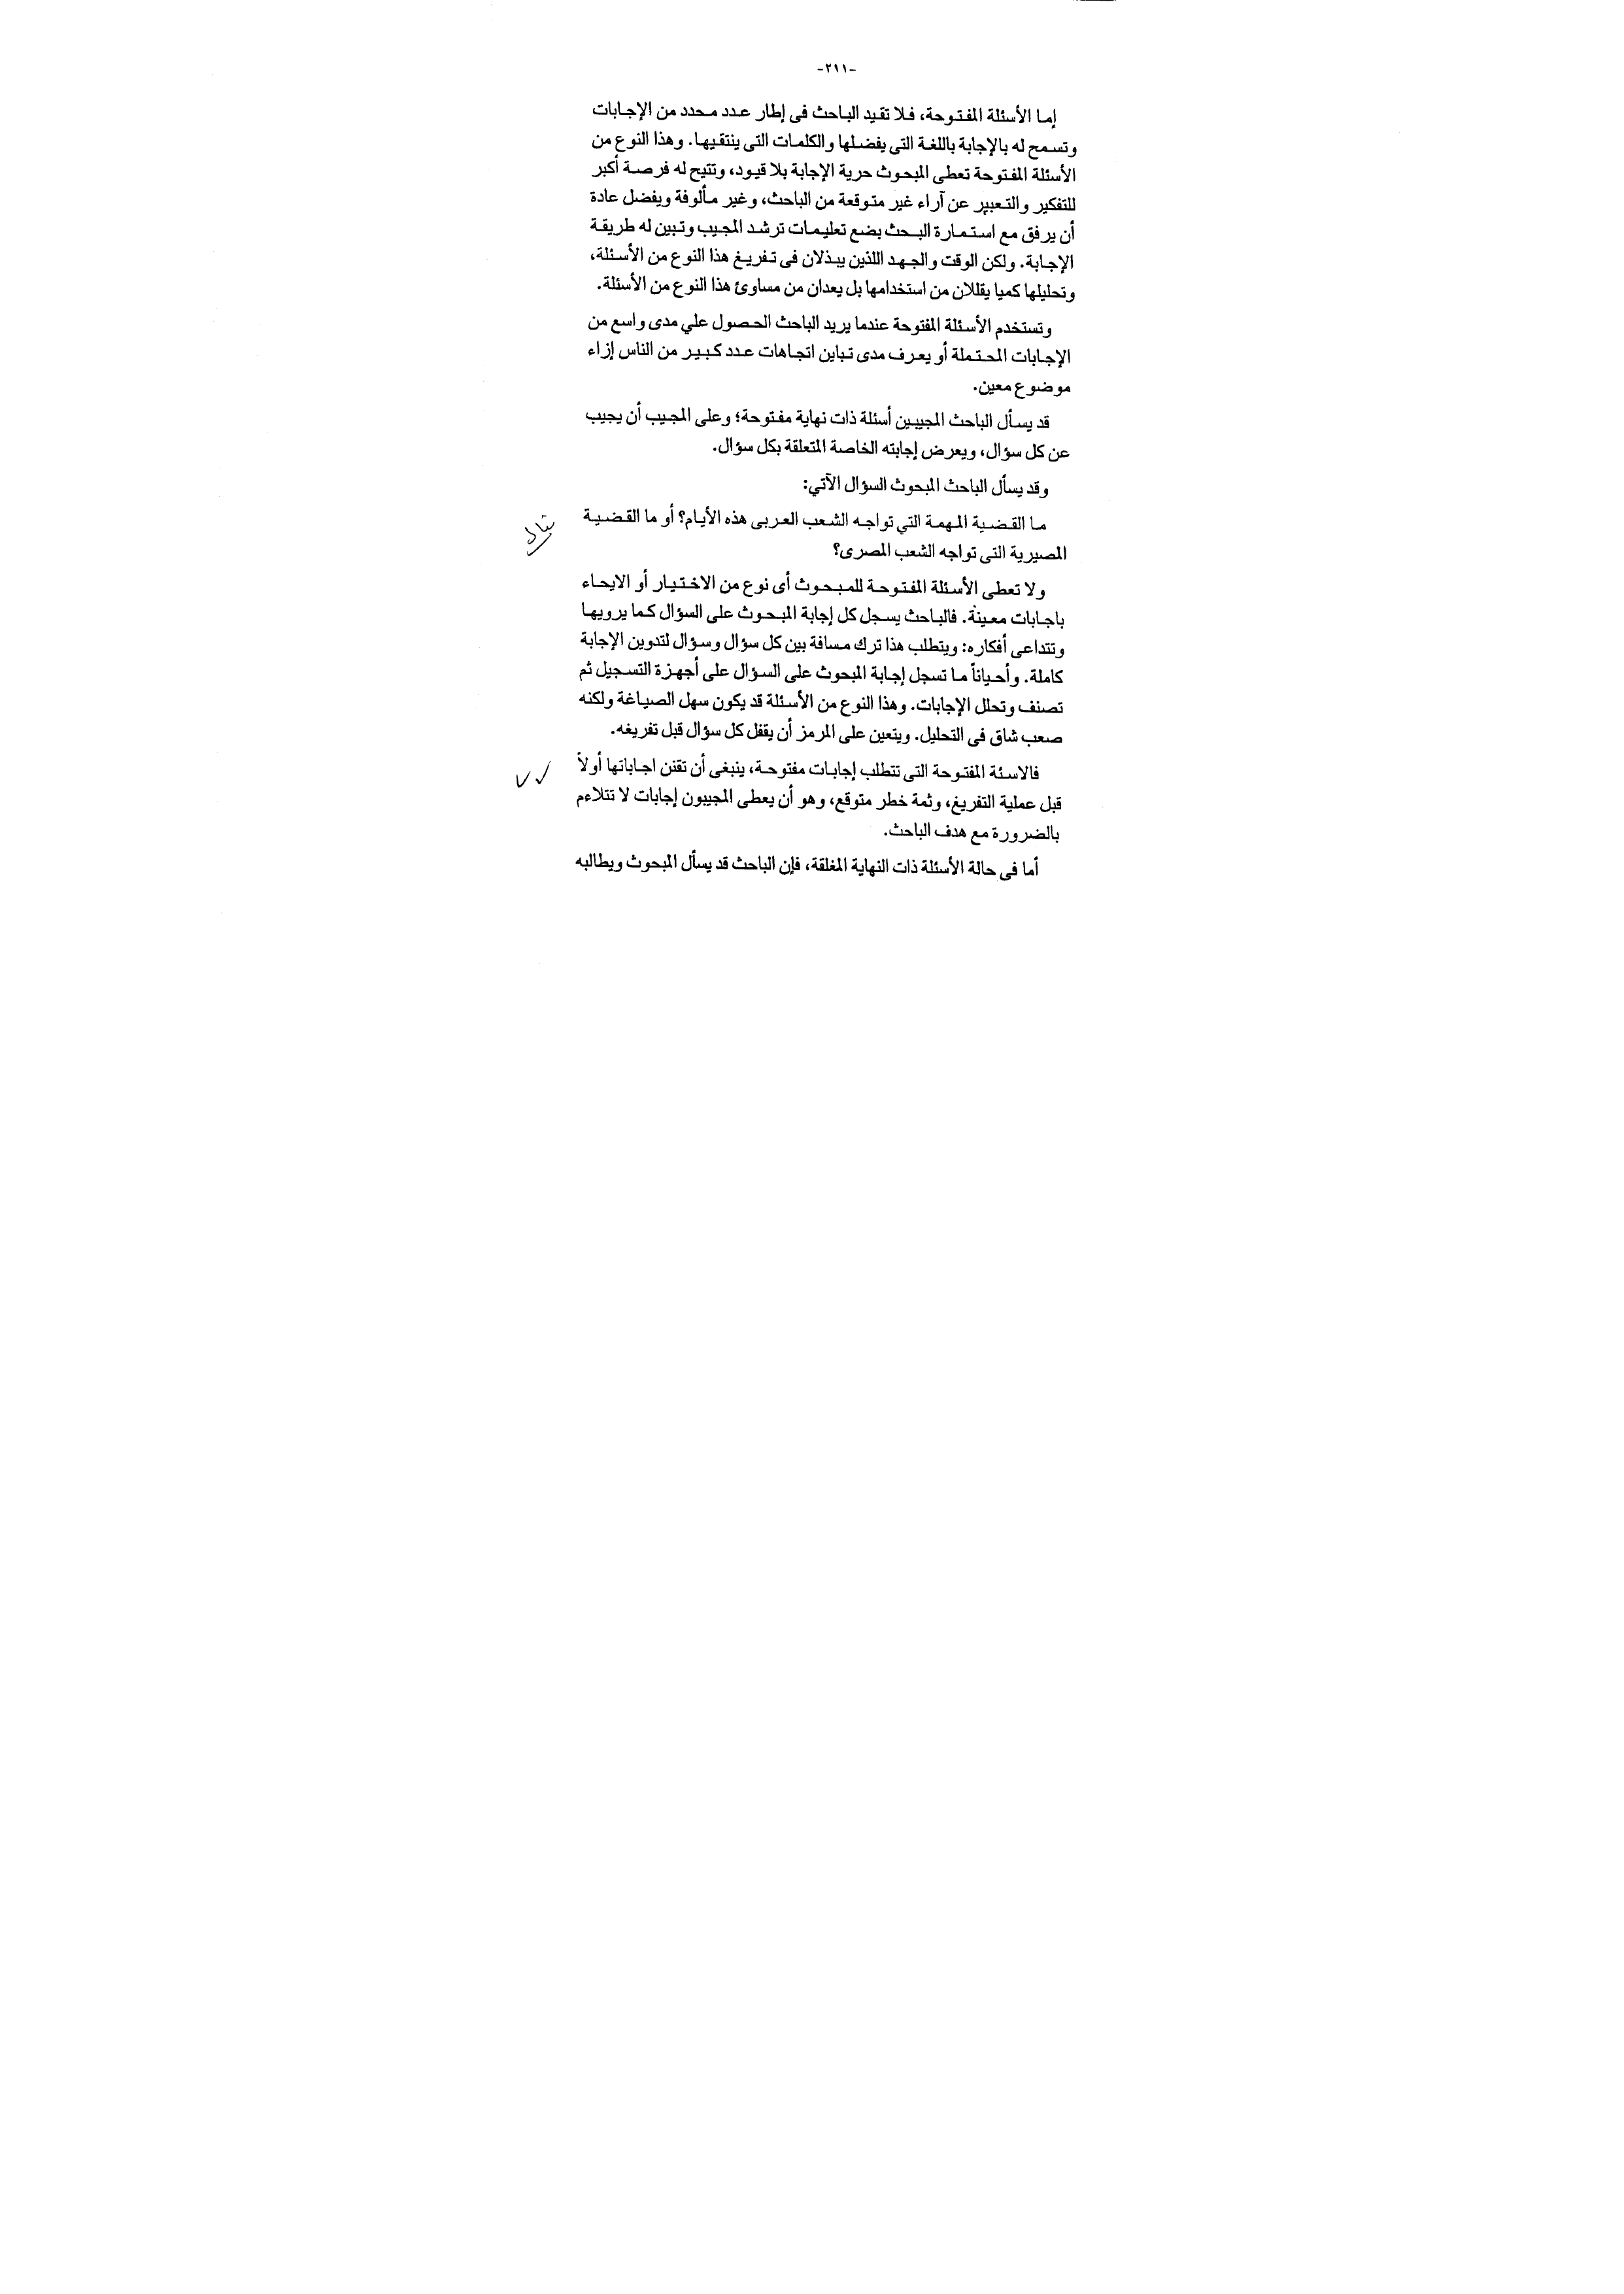 -٢١١-
إما الأسئلة المفتوحة، فلا تقيد الباحث فى إطار عدد محدد من الإجابات
وتسمح له بالإجابة باللغة التى يفضلها والكلمات التى ينتقيها. وهذا النوع من
الأسئلة المفتوحة تعطى المبحوث حرية الإجابة بلا قيود، وتتيح له فرصة أكبر
للتفكير والتعبير عن آراء غير متوقعة من الباحث، وغير مألوفة ويفضل عادة
أن يرفق مع استمارة البحث بضع تعليمات ترشد المجيب وتبين له طريقة
الإجابة. ولكن الوقت والجهد اللذين يبذلان فى تفريغ هذا النوع من الأسئلة،
وتحليلها كميا يقللان من استخدامها بل يعدان من مساوئ هذا النوع من الأسئلة.
وتستخدم الأسئلة المفتوحة عندما يريد الباحث الحصول علي مدى واسع من
الإجابات المحتملة أو يعرف مدى تباين اتجاهات عدد كبير من الناس إزاء
موضوع معين.
قد يسأل الباحث المجيبين أسئلة ذات نهاية مفتوحة؛ وعلى المجيب أن يجيب
عن كل سؤال، ويعرض إجابته الخاصة المتعلقة بكل سؤال.
وقد يسأل الباحث المبحوث السؤال الآتي:
ما القضية المهمة التي تواجه الشعب العربى هذه الأيام؟ أو ما القضية
المصيرية التى تواجه الشعب المصرى؟
ولا تعطى الأسئلة المفتوحة للمبحوث أى نوع من الاختيار أو الايحاء
باجابات معينة. فالباحث يسجل كل إجابة المبحوث على السؤال كما يرويها
وتتداعى أفكاره: ويتطلب هذا ترك مسافة بين كل سؤال وسؤال لتدوين الإجابة
كاملة. وأحياناً ما تسجل إجابة المبحوث على السؤال على أجهزة التسجيل ثم
تصنف وتحلل الإجابات. وهذا النوع من الأسئلة قد يكون سهل الصياغة ولكنه
صعب شاق فى التحليل. ويتعين على المرمز أن يقفل كل سؤال قبل تفريغه.
فالاسئة المفتوحة التى تتطلب إجابات مفتوحة، ينبغى أن تقنن اجاباتها أولاً
قبل عملية التفريغ، وثمة خطر متوقع، وهو أن يعطى المجيبون إجابات لا تتلاءم
بالضرورة مع هدف الباحث.
أما فى حالة الأسئلة ذات النهاية المغلقة، فإن الباحث قد يسأل المبحوث ويطالبه